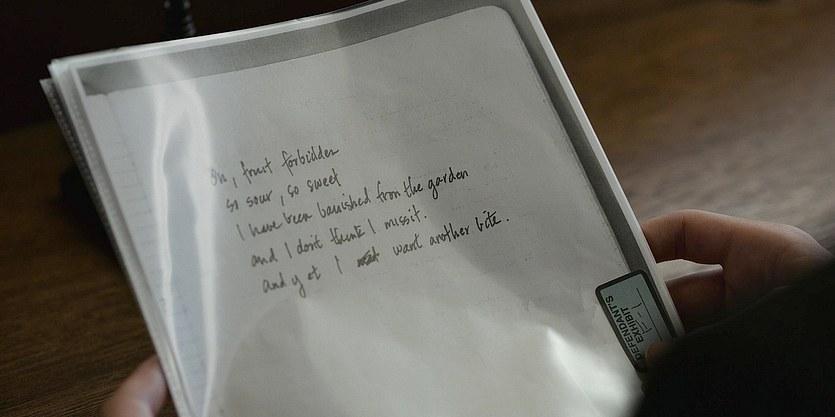 Oh, fruit forbidden
so sour, so sweet
I have been banished from the garden
and I don't think I miss it.
and yet I want another bite.
DEFENDANT'S
EXHIBIT